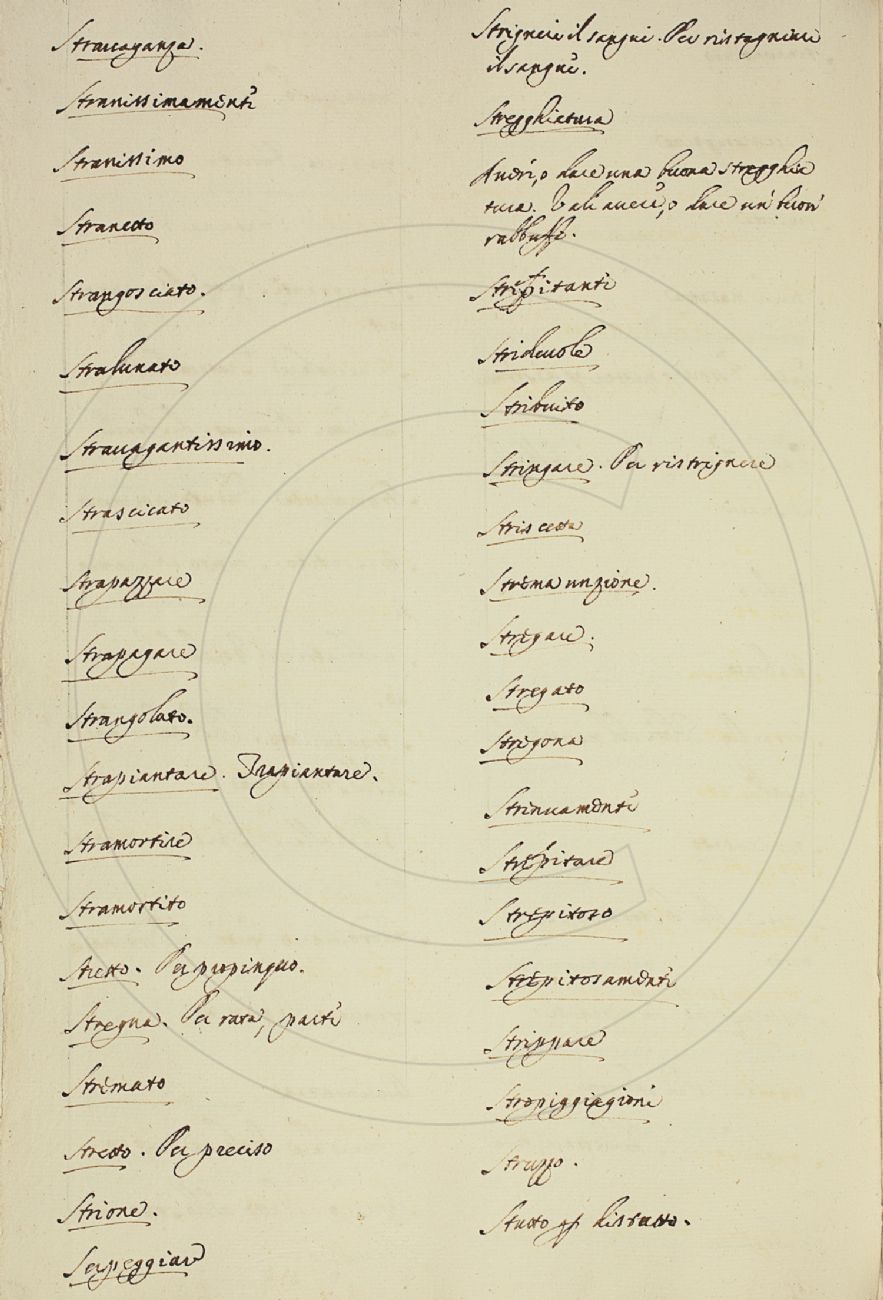 Stravaganza.
Stranissimamente
Stranissimo
Stranetto
Strangosciato.
Stralunato
Stravagantissimo.
Strascicato
Strapazzare
Strapagare
Strangolato.
Strapiantare. Trapiantare.
Stramortire
Stramortito
Stretto. Per propinquo.
Stregua. Per rata, parte
Stremato
Stretto. Per preciso
Strione.
Serpeggiare
Strignere il sangue. Per ristagnare
il sangue.
Stregghiatura
Avere, o dare una buona stregghia
tura. Vale avere, o dare un buon
rabbuffo.
Strepitante
Stridevole
Stribuito
Stringare. Per ristrignere
Striscetta
Strema unzione.
Stregare.
Stregato
Stregona
Strenuamente
Strepitare
Strepitoso
Strepitosamente
Strippare
Stropiggiagione
Struppo.
Stutto disfatto.